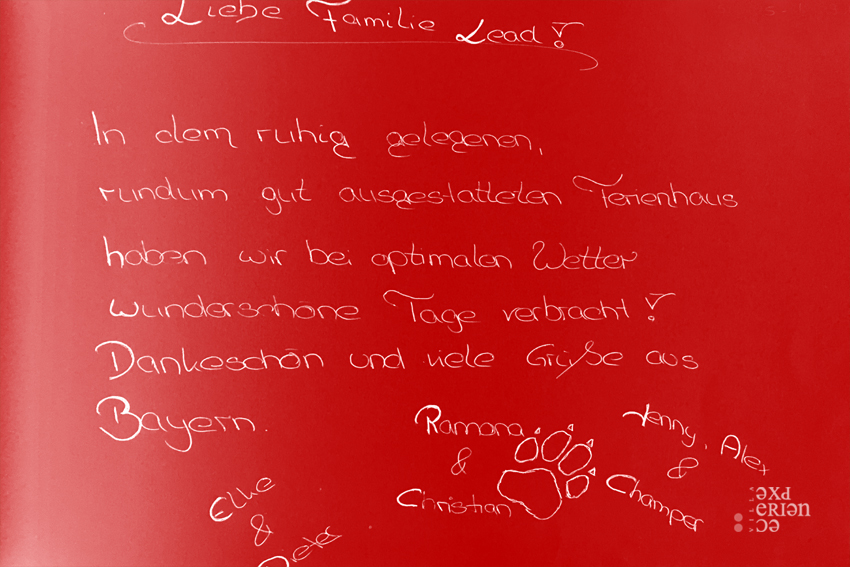 Liebe Familie Lead!
In dem ruhig gelegenen,
rundum gut ausgestatteten Ferienhaus
haben wir bei optimalen Wetter
wunderschöne Tage verbracht!
Dankeschön und viele Grüße aus
Bayern.
Ramona
&
Christian
Jenny, Alex
&
Champer
Elke
&
Dieter
VILLA
eXPERIENCE